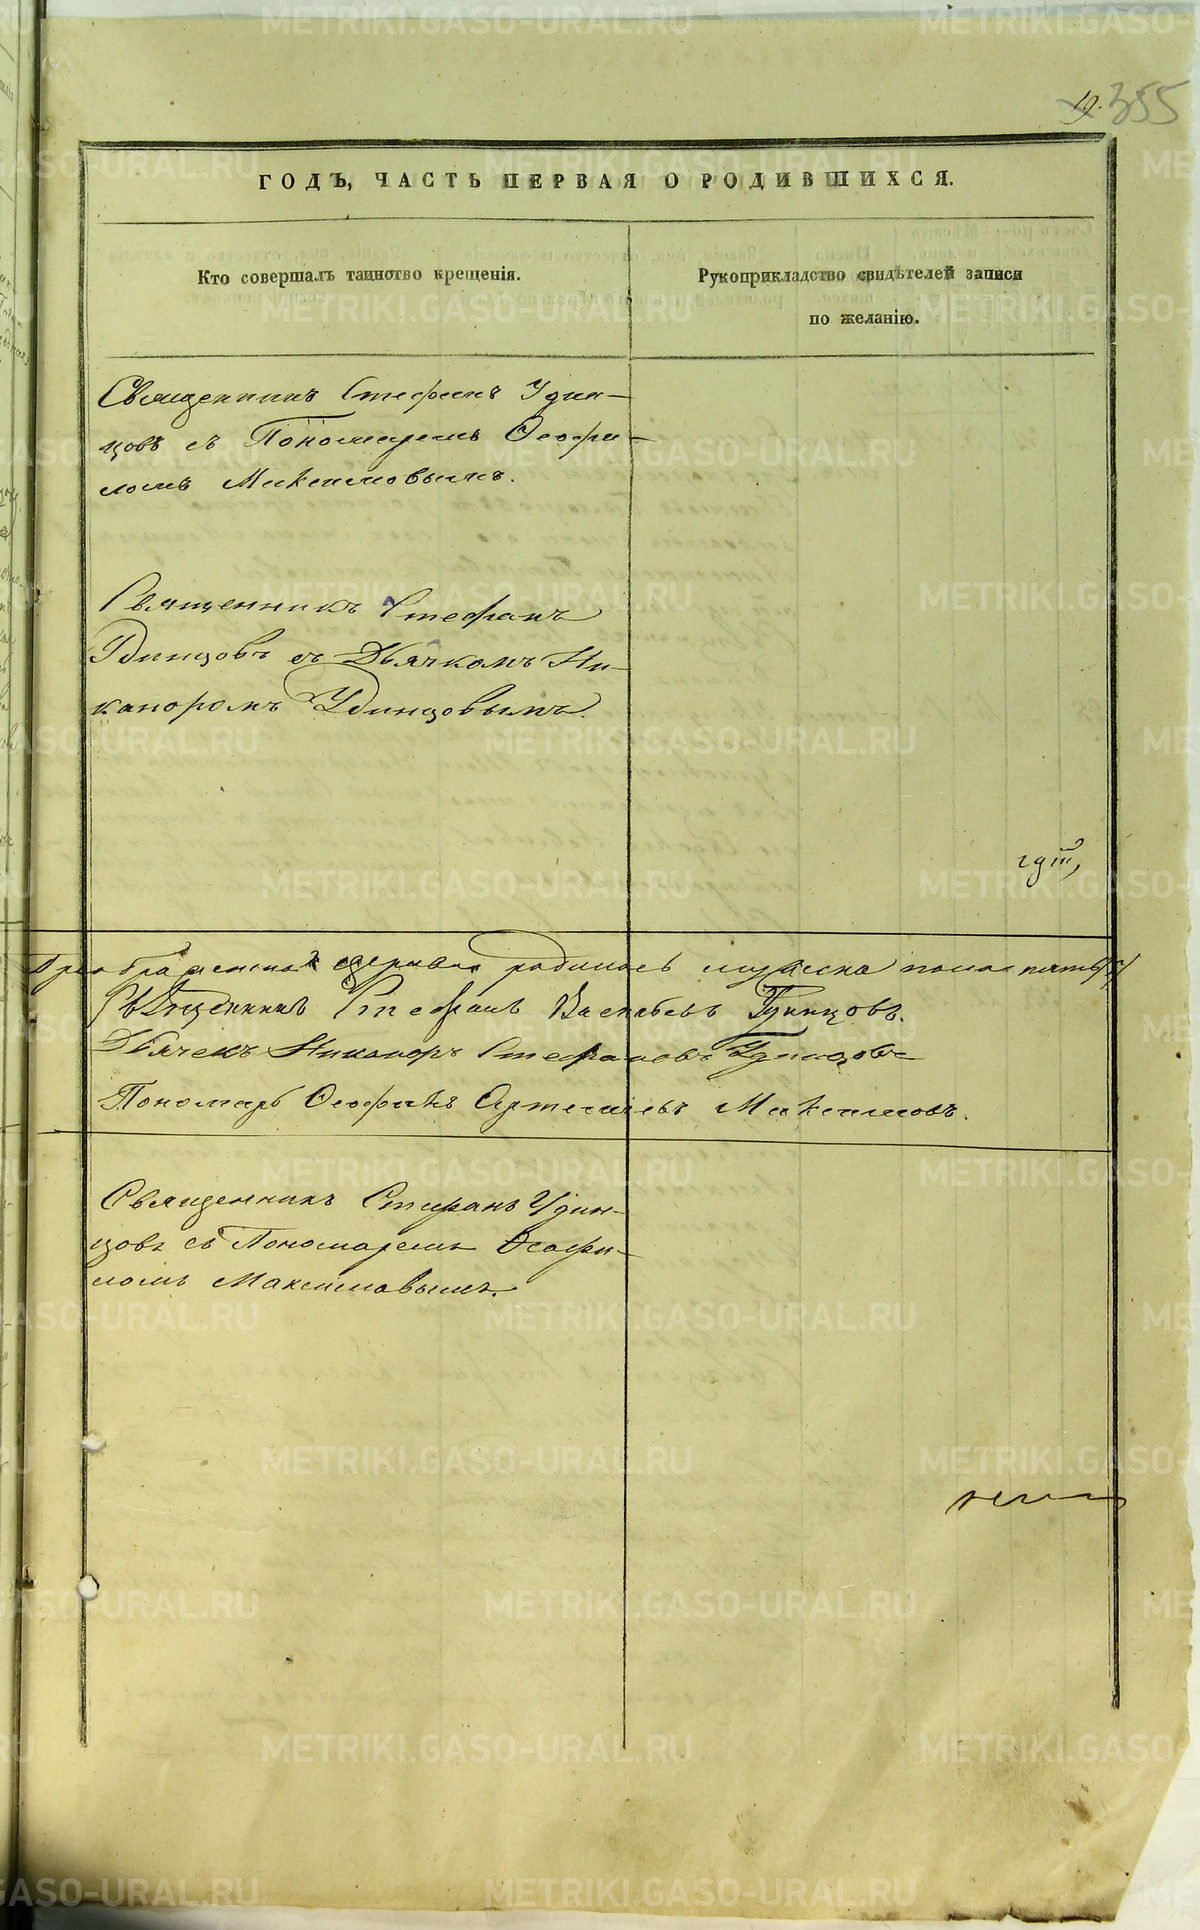 355
ГОДЪ, ЧАСТЬ ПЕРВАЯ О РОДИВШИХСЯ.
Кто совершалъ таинство крещенія.
Рукоприкладство свидѣтелей записи
по желанію.
Священникъ Стефанъ Удин-
цовъ съ Пономаремъ Ѳеофи-
ломъ Максимовымъ.
Священникъ Стефанъ
Удинцовъ съ Дьячкомъ Ни-
каноромъ Удинцовымъ.
церкви родилось мужеска пола пять
Священникъ Стефанъ Васильевъ Удинцовъ.
Дьячекъ Никаноръ Стефановъ Удинцовъ
Пономарь Ѳеофилъ Артемьевъ Максимовъ.
Священникъ Стефанъ Удин-
цовъ съ Пономаремъ Ѳеофи-
ломъ Максимовымъ.
METRIKI.GASO-URAL.RU